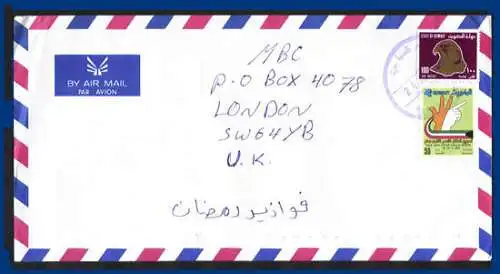 MBC
P.O BOX 4078
LONDON
SW64YB
U.K.
فوازير رمضان
BY AIR MAIL
PAR AVION
STATE OF KUWAIT
دولة الكويت
100
١٠٠
KUWAIT
الكويت